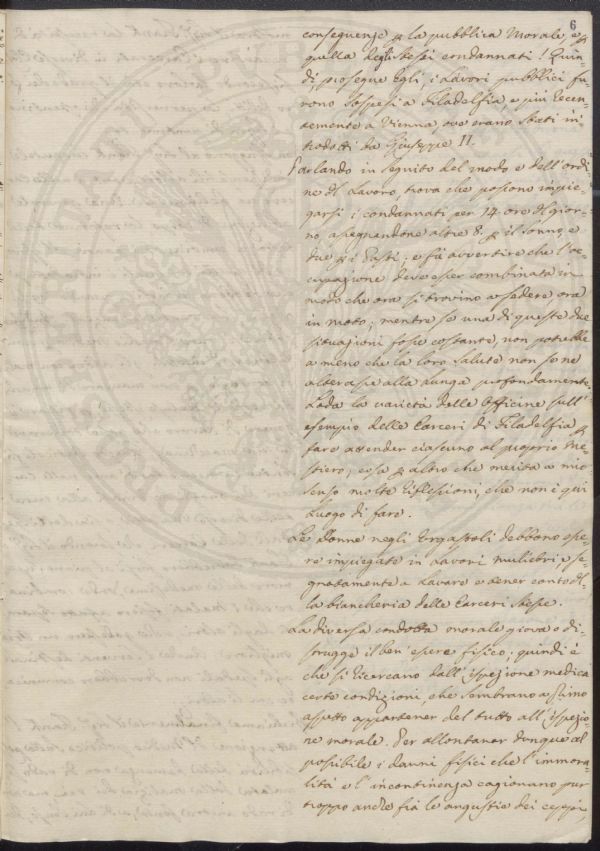 6
conseguenze p la pubblica Morale, e p
quella degli stessi condannati! Quin-
di, prosegue Egli, i Lavori pubblici fu-
rono sospesi a Filadelfia, e più recen-
temente a Vienna, ove erano stati in-
trodotti da Giuseppe II.
Parlando in seguito del modo e dell'ordi-
ne del Lavoro, trova che possono impie-
garsi i condannati per 14 ore di gior-
no, assegnandone altre 8. p il sonno, e
due p i Pasti; e fà avvertire che l'oc-
cupazione deve esser combinata in
modo che ora si trovino a sedere ora
in moto; mentre se una di queste due
situazioni fosse costante, non potrebbe
a meno che la loro salute non se ne
alterasse alla lunga profondamente.
Loda la varietà delle Officine sull'
esempio delle Carceri di Filadelfia p
fare attender ciascuno al proprio Me-
stiero; cosa p altro che merita a mio
senso molte riflessioni, che non è qui
luogo di fare.
Le Donne negli Ergastoli debbono esse-
re impiegate in Lavori muliebri, e se-
gnatamente a Lavare e tener conto del-
la biancheria delle Carceri stesse.
La diversa condotta morale giova o di-
strugge il ben'essere fisico; quindi è
che si ricercano dall'ispezione medica
certe condizioni, che sembrano a primo
aspetto appartener del tutto all'ispezio-
ne morale. Per allontanar dunque al
possibile i danni fisici che l'immora-
lità e l'incontinenza cagionano pur
troppo anche frà le angustie dei ceppi,